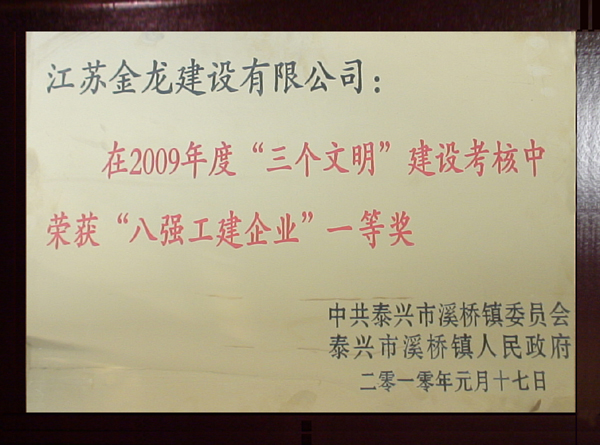 江苏金龙建设有限公司：
在2009年度“三个文明”建设考核中
荣获“八强工建企业”一等奖
中共泰兴市溪桥镇委员会
泰兴市溪桥镇人民政府
二零一零年元月十七日